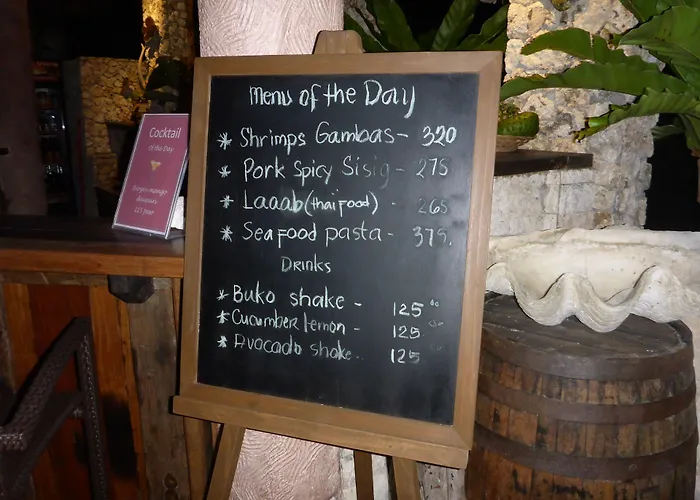 Menu of the Day
* Shrimps Gambas - 320
* Pork Spicy Sisig - 275
* Laaab (thai food) - 265
* Seafood pasta - 375.
Drinks
* Buko shake - 125 00
* Cucumber lemon - 125
* Avocado shake - 125
Cocktail
of the Day
frozen mango